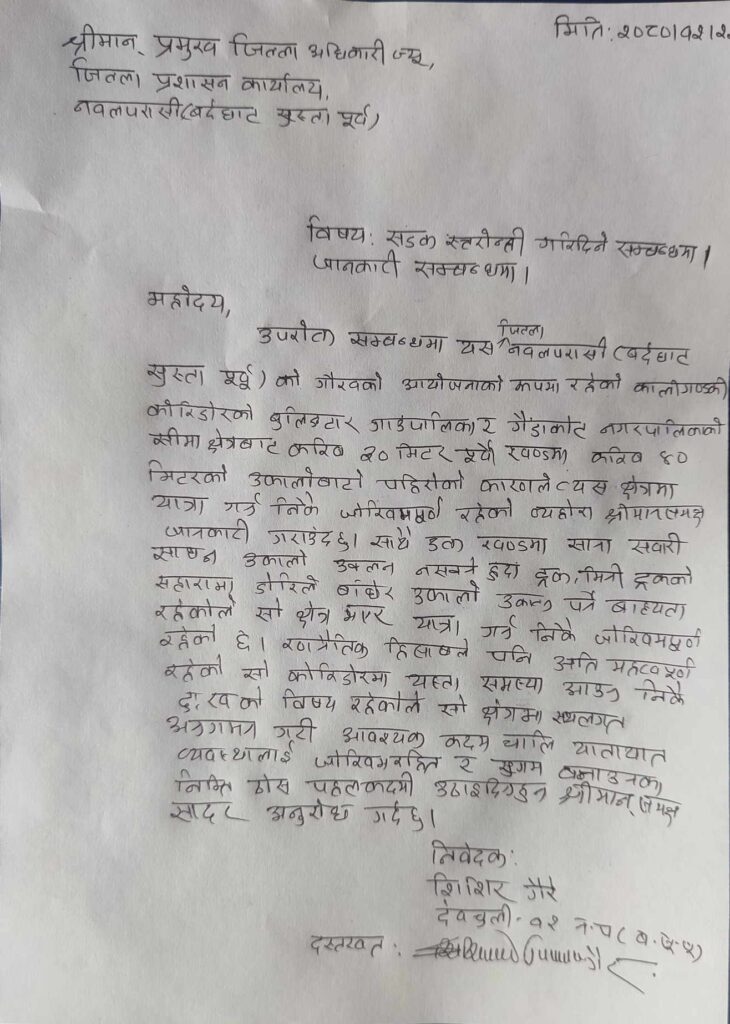 मिति: २०८०।१२।२
श्रीमान् प्रमुख जिल्ला अधिकारी ज्यू,
जिल्ला प्रशासन कार्यालय,
नवलपरासी(बर्दघाट सुस्ता पूर्व)
विषय: सडक स्तरोन्नती गरिदिने सम्बन्धमा।
जानकारी सम्बन्धमा।
महोदय,
उपरोक्त सम्बन्धमा यस जिल्ला नवलपरासी (बर्दघाट
सुस्ता पूर्व) को गौरवको आयोजनाको रूपमा रहेको कालीगण्डकी
कोरिडोरको बुलिङटार गाउँपालिका र गैंडाकोट नगरपालिकाको
सीमा क्षेत्रबाट करिब २० मिटर पूर्व खण्डमा करिब ४०
मिटरको उकालोबाटो पहिरोको कारणले त्यस क्षेत्रमा
यात्रा गर्न निकै जोखिमपूर्ण रहेको व्यहोरा श्रीमानसमक्ष
जानकारी गराउँदछु। साथै उक्त खण्डमा साना सवारी
साधन उकालो उक्लन नसक्ने हुदा ट्रक, मिनी ट्रकको
सहारामा डोरिले बाँधेर उकालो उक्लनु पर्ने बाध्यता
रहेकोले सो क्षेत्र भएर यात्रा गर्न निकै जोखिमपूर्ण
रहेको छ। रणनैतिक हिसाबले पनि अति महत्वपूर्ण
रहेको सो कोरिडोरमा यस्ता समस्या आउनु निकै
दुःखको विषय रहेकोले सो क्षेत्रमा स्थलगत
अनुगमन गरी आवश्यक कदम चालि यातायात
व्यवस्थालाई जोखिमरहित र सुगम बनाउनका
निम्ति ठोस पहलकदमी उठाइदिनुहुन श्रीमान् समक्ष
सादर अनुरोध गर्दछु।
निवेदक:
शिशिर गैरे
देवचुली-१२ न.प( ब.सु.पू)
दस्तखत: